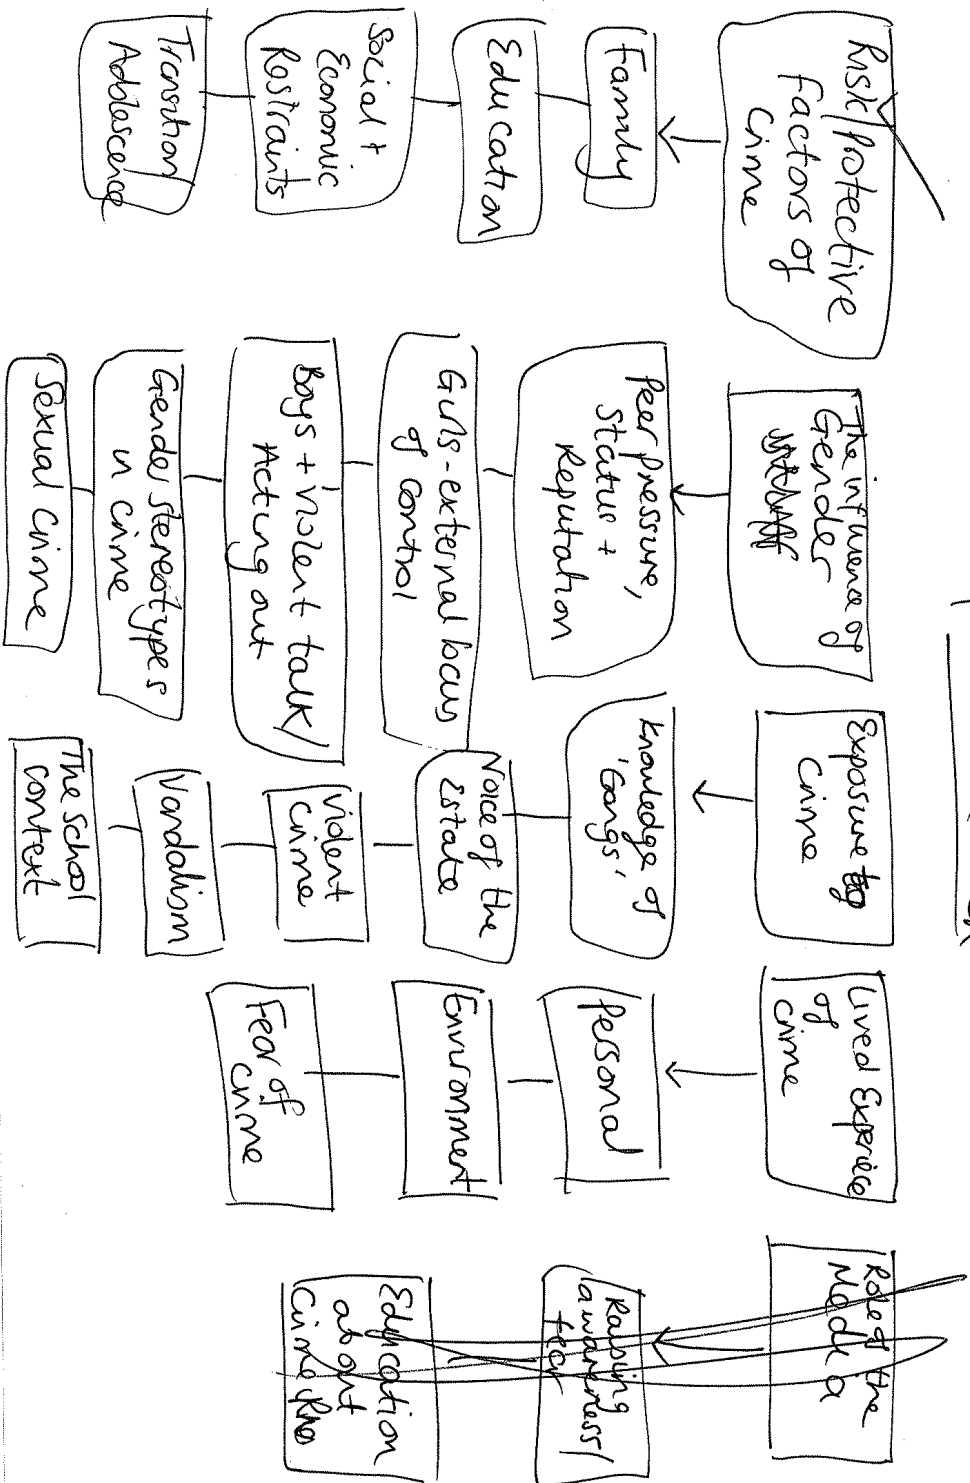 Risk/Protective
Factors of
Crime
Family
Education
Social +
Economic
Restraints
Transition
Adolescence
The influence of
Gender
Peer pressure,
Status +
Reputation
Girls - external locus
of control
Boys + violent talk/
Acting out
Gender stereotypes
in crime
Sexual Crime
Exposure to
Crime
Knowledge of
'Gangs'
Voice of the
Estate
Violent
Crime
Vandalism
The School
context
Lived Experience
of
crime
Personal
Environment
Fear of
crime
Role of the
Media
Raising
awareness/
fear
Education
about
Crime